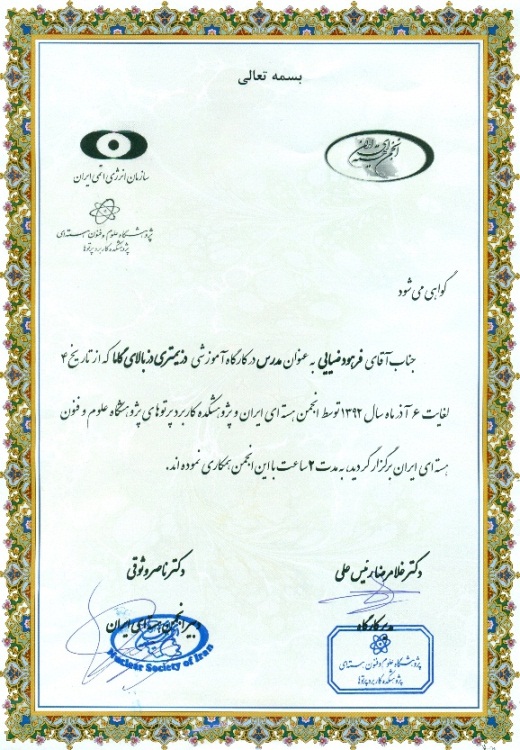 بسمه تعالی
انجمن هسته ای ایران
سازمان انرژی اتمی ایران
پژوهشگاه علوم و فنون هسته ای
پژوهشکده کاربرد پرتوها
گواهی می شود
جناب آقای فرهود ضیایی به عنوان مدرس در کارگاه آموزشی دزیمتری دز بالای گاما که از تاریخ ۴
لغایت ۶ آذر ماه سال ۱۳۹۲ توسط انجمن هسته ای ایران و پژوهشکده کاربرد پرتوهای پژوهشگاه علوم و فنون
هسته ای ایران برگزار گردید، به مدت ۲ ساعت با این انجمن همکاری نموده اند.
دکتر غلامرضا رئیس علی
دکتر ناصر وثوقی
مدیر کارگاه
دبیر انجمن هسته ای ایران
Nuclear Society of Iran
پژوهشگاه علوم و فنون هسته ای
پژوهشکده کاربرد پرتوها